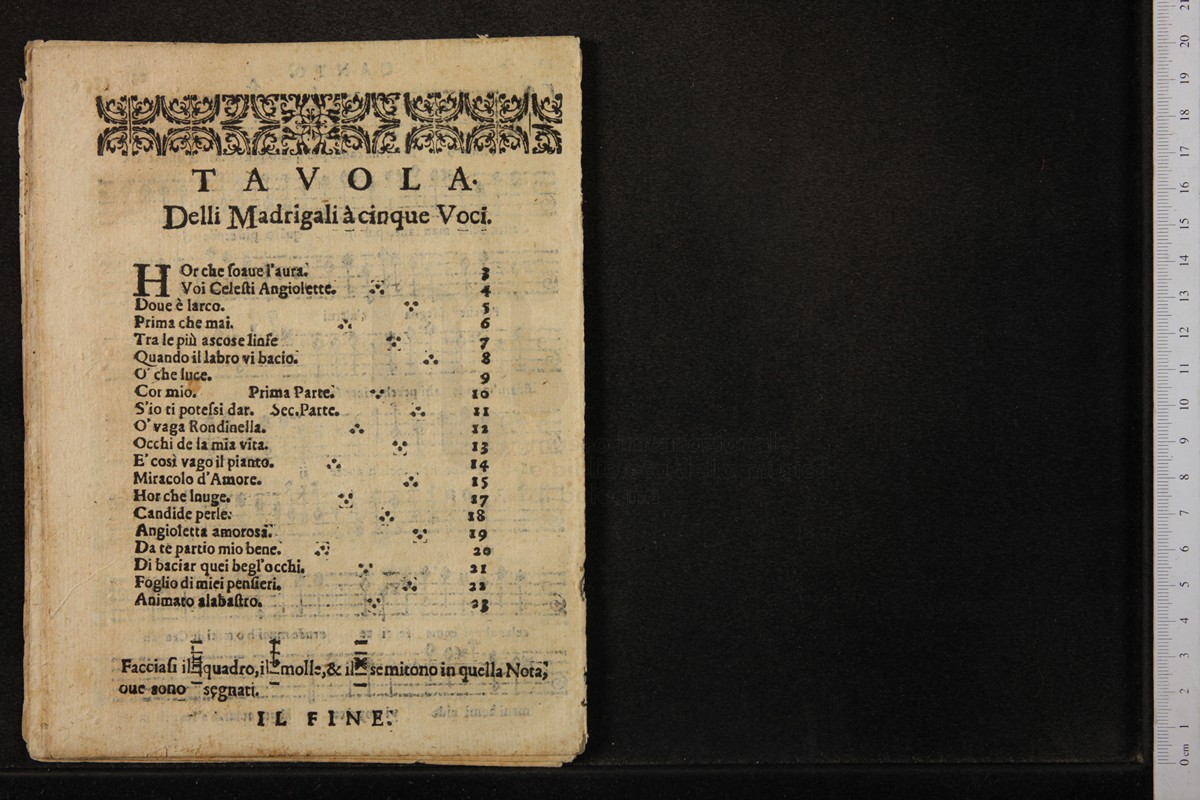 TAVOLA.
Delli Madrigali à cinque Voci.
HOr che soaue l'aura. 3
Voi Celesti Angiolette. 4
Doue è larco. 5
Prima che mai. 6
Tra le più ascose linfe 7
Quando il labro vi bacio. 8
O' che luce. 9
Cor mio. Prima Parte. 10
S'io ti potessi dar. Sec. Parte. 11
O' vaga Rondinella. 12
Occhi de la mia vita. 13
E' così vago il pianto. 14
Miracolo d'Amore. 15
Hor che lnuge. 17
Candide perle. 18
Angioletta amorosa. 19
Da te partio mio bene. 20
Di baciar quei begl'occhi. 21
Foglio di miei pensieri. 22
Animato alabastro. 23
Facciasi il ♮ quadro, il ♭ molle, & il semitono in quella Nota,
oue sono segnati.
IL FINE.
0 cm 1 2 3 4 5 6 7 8 9 10 11 12 13 14 15 16 17 18 19 20 21